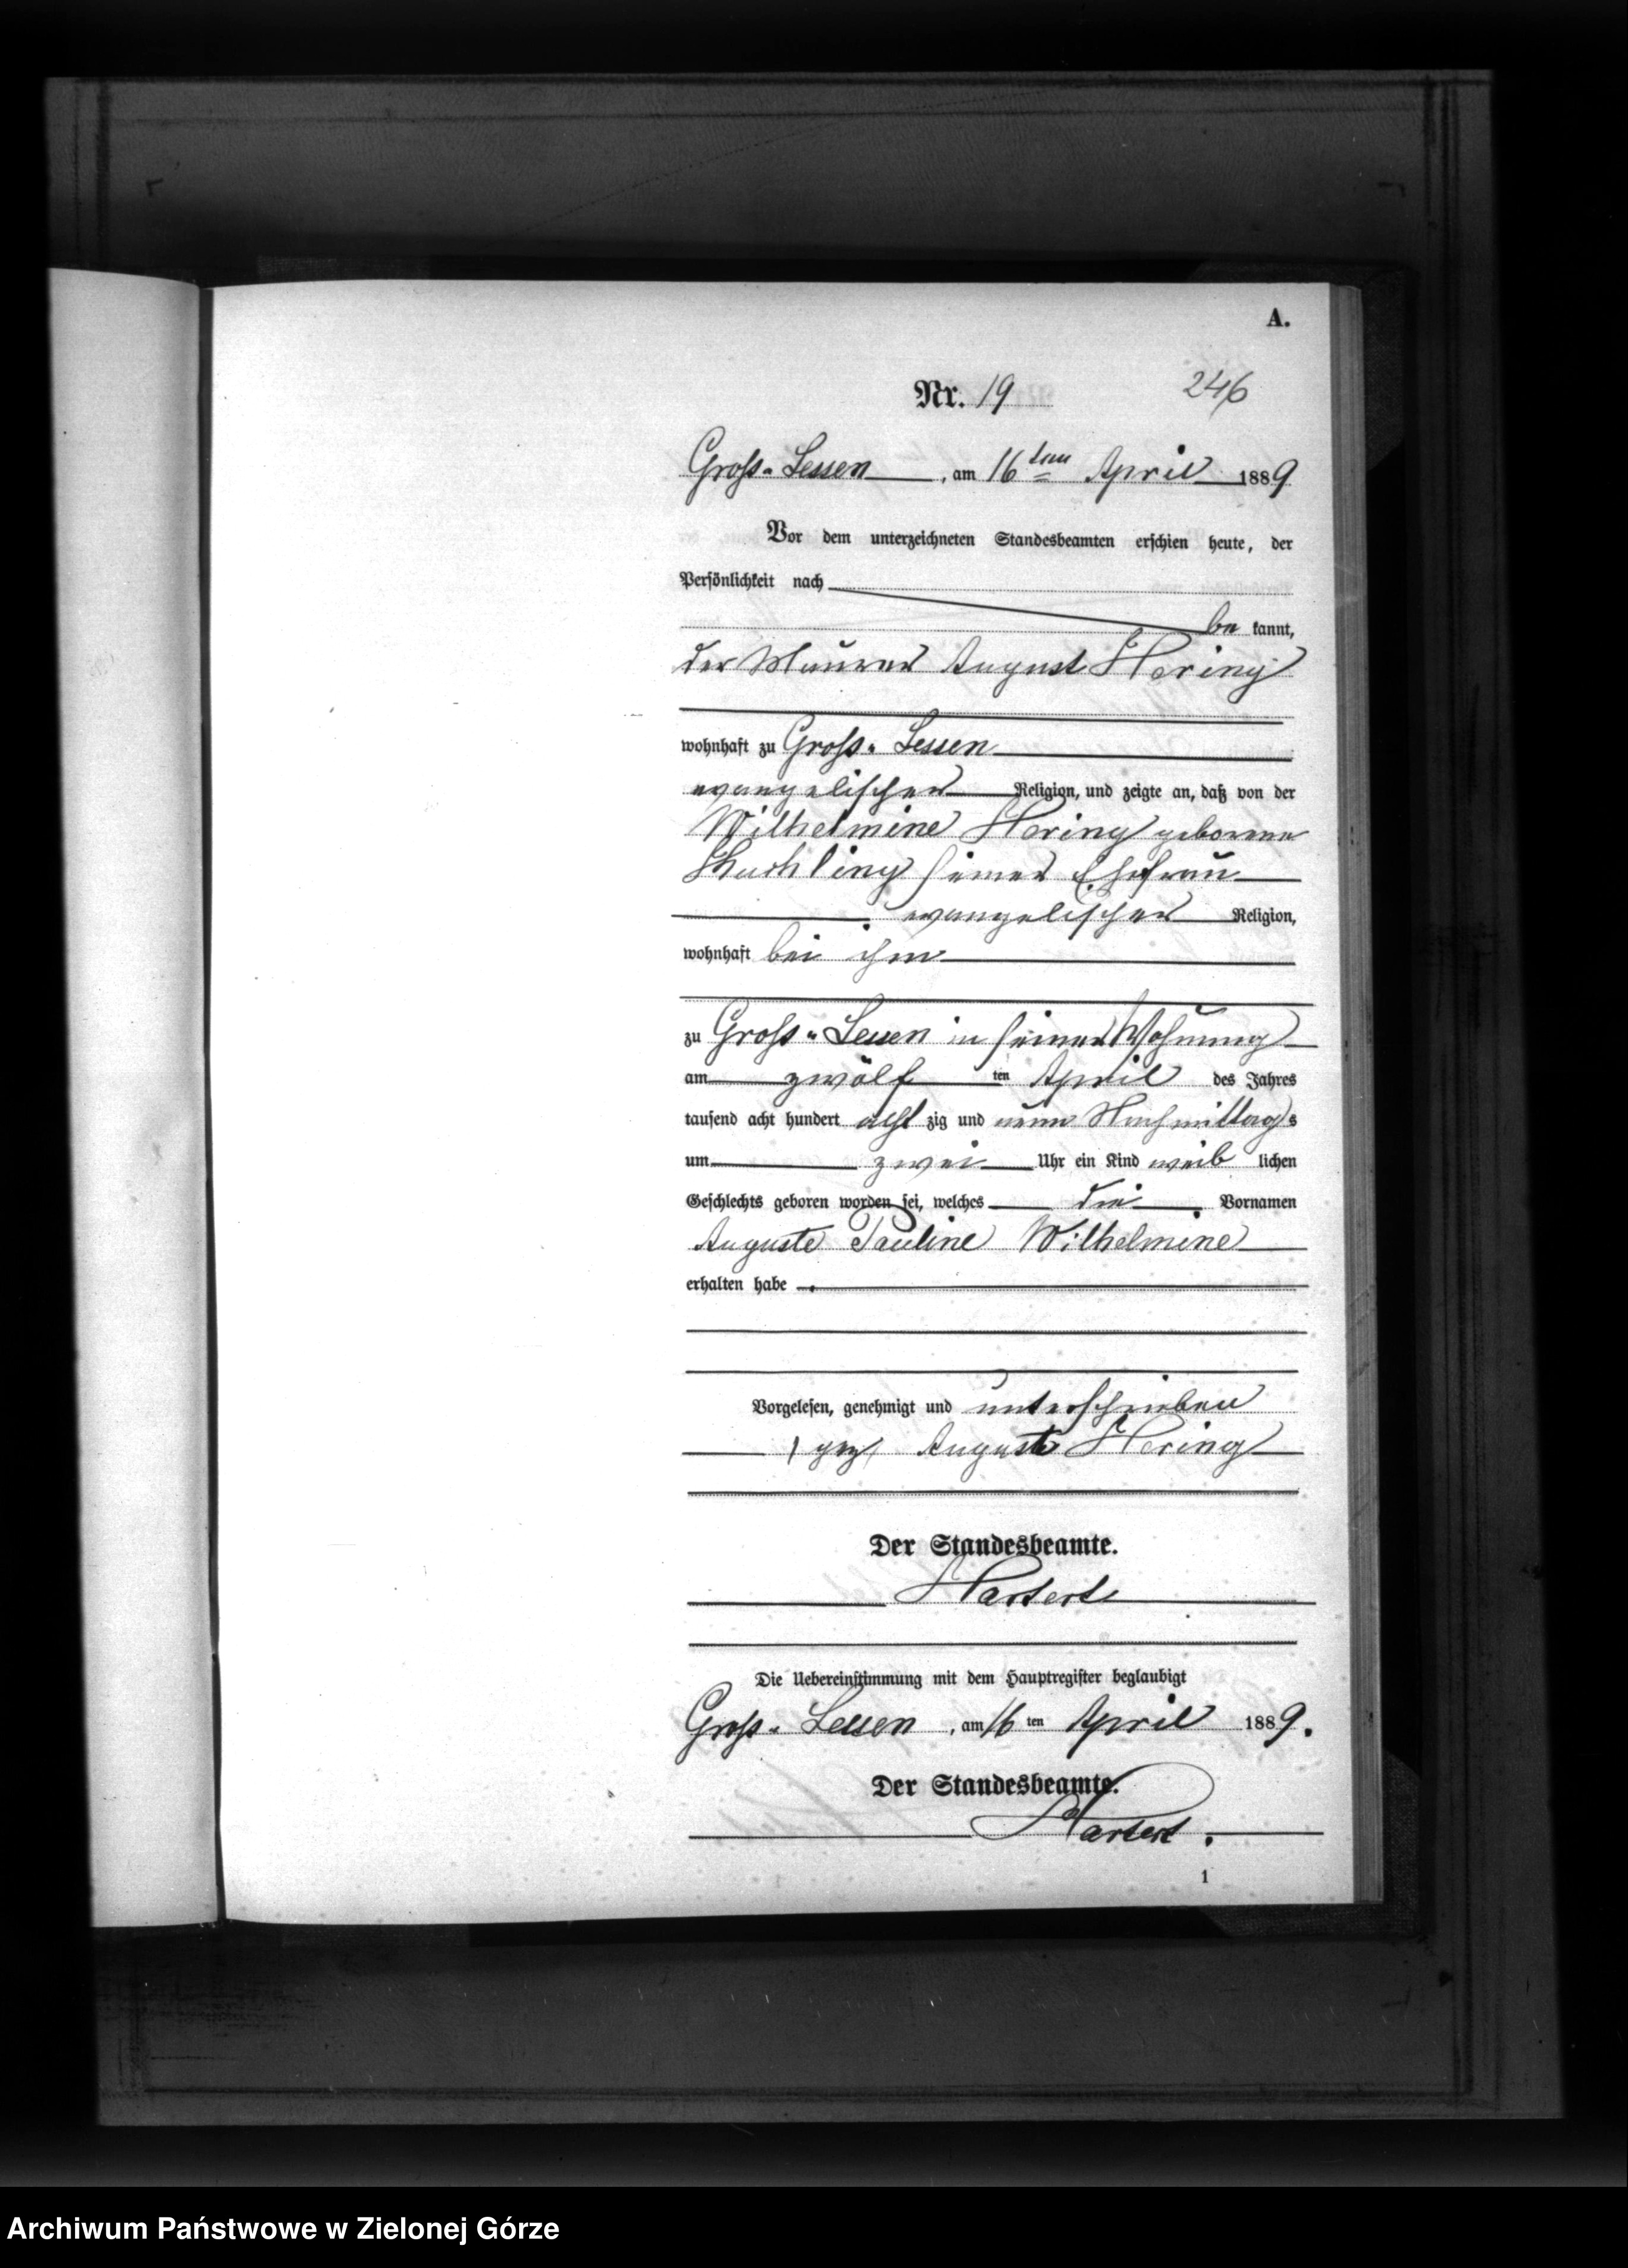 A.
Nr. 19
246
Gross-Lessen, am 16ten April 1889
Vor dem unterzeichneten Standesbeamten erschien heute, der
Persönlichkeit nach
be kannt,
der Maurer August Hering
wohnhaft zu Gross-Lessen
evangelischer Religion, und zeigte an, daß von der
Wilhelmine Hering geborene
seiner Ehefrau
evangelischer Religion,
wohnhaft bei ihm
zu Gross-Lessen in seiner Wohnung
am zwölf ten April des Jahres
tausend acht hundert acht zig und neun Nachmittags
um zwei Uhr ein Kind weib lichen
Geschlechts geboren worden sei, welches die Vornamen
Auguste Pauline Wilhelmine
erhalten habe
Vorgelesen, genehmigt und unterschrieben
(gez) August Hering
Der Standesbeamte.
Hartert
Die Uebereinstimmung mit dem Hauptregister beglaubigt
Gross-Lessen, am 16 ten April 1889.
Der Standesbeamte.
Hartert.
1
Archiwum Państwowe w Zielonej Górze